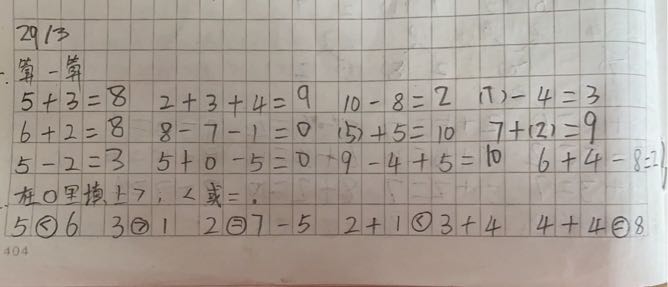 29/3
一. 算一算
5+3=8 2+3+4=9 10-8=2 (7)-4=3
6+2=8 8-7-1=0 (5)+5=10 7+(2)=9
5-2=3 5+0-5=0 9-4+5=10 6+4-8=2
在○里填上>,<或=.
5<6 3>1 2=7-5 2+1<3+4 4+4=8
404